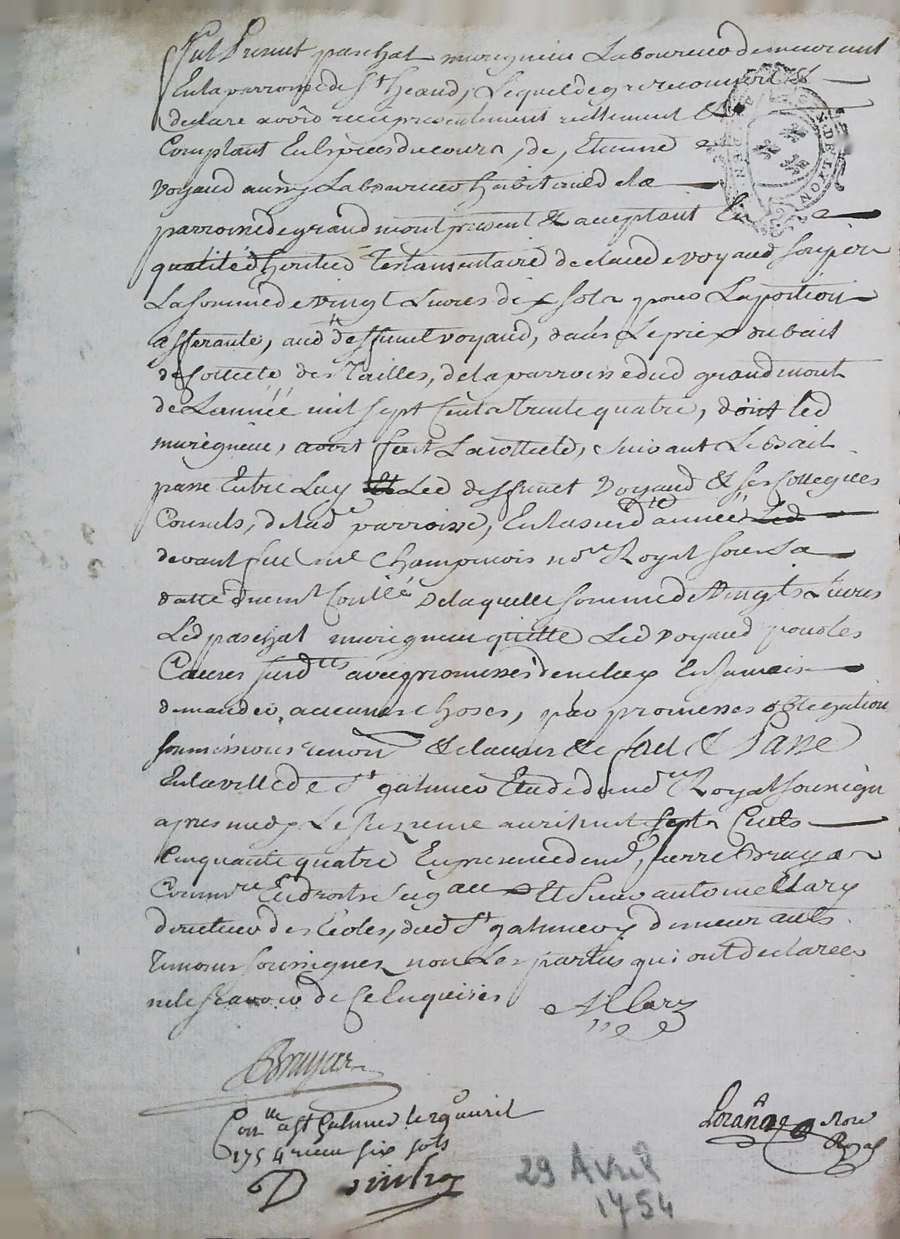 fut Present paschal murigneux Laboureur demeurant
En la parroisse de St heand, Lequel de gré reconnoit &
declare avoir reçu presentement réellement &
Comptant En Espèces du cours, de, Etienne
voyaud aussy Laboureur habitant de la
parroisse de grandmont present & acceptant En
qualité d'heritier Testamentaire de claude voyaud son père
La somme de vingt Livres dix sols pour La portion
afferante, aud deffunct voyaud, dans Le prix du bail
de collecte des Tailles, de la parroisse dud grandmont
de L'année mil sept Cents Trente quatre, dont led
murigneux, avoit fait La collecte, suivant Le bail
passé Entre Luy Led deffunct Voyaud & ses collegues
Consuls, de lade parroisse, En la susd année
devant feu me notre Royal sous sa
datte duemt Conllé De laquelle somme de Vingts Livres
Led paschal murigneux quitte Led voyaud pour les
Causes susdttes avec promesses d'en Jamais
demander aucunes choses, par promesses obligation
soumissions renonn & clauses & fait & Passé
En la ville de St galmier Etude du nore Royal soussigné
apres midy Le avril mil sept Cents
Cinquante quatre En presence de me pierre Bruyas
Commre En droits seigaux Et sieur antoine Alary
directeur des Ecoles, dud St galmier y demeurants
Temoins soussignes non Les parties qui ont declarées
ne le sçavoir de ce Enquises Allary
Bruyas
Conlle a St Galmier le 29 avril
1754 reçu six sols
Lorange Nore
Royal
29 Avril
1754
GEN. DE LYON